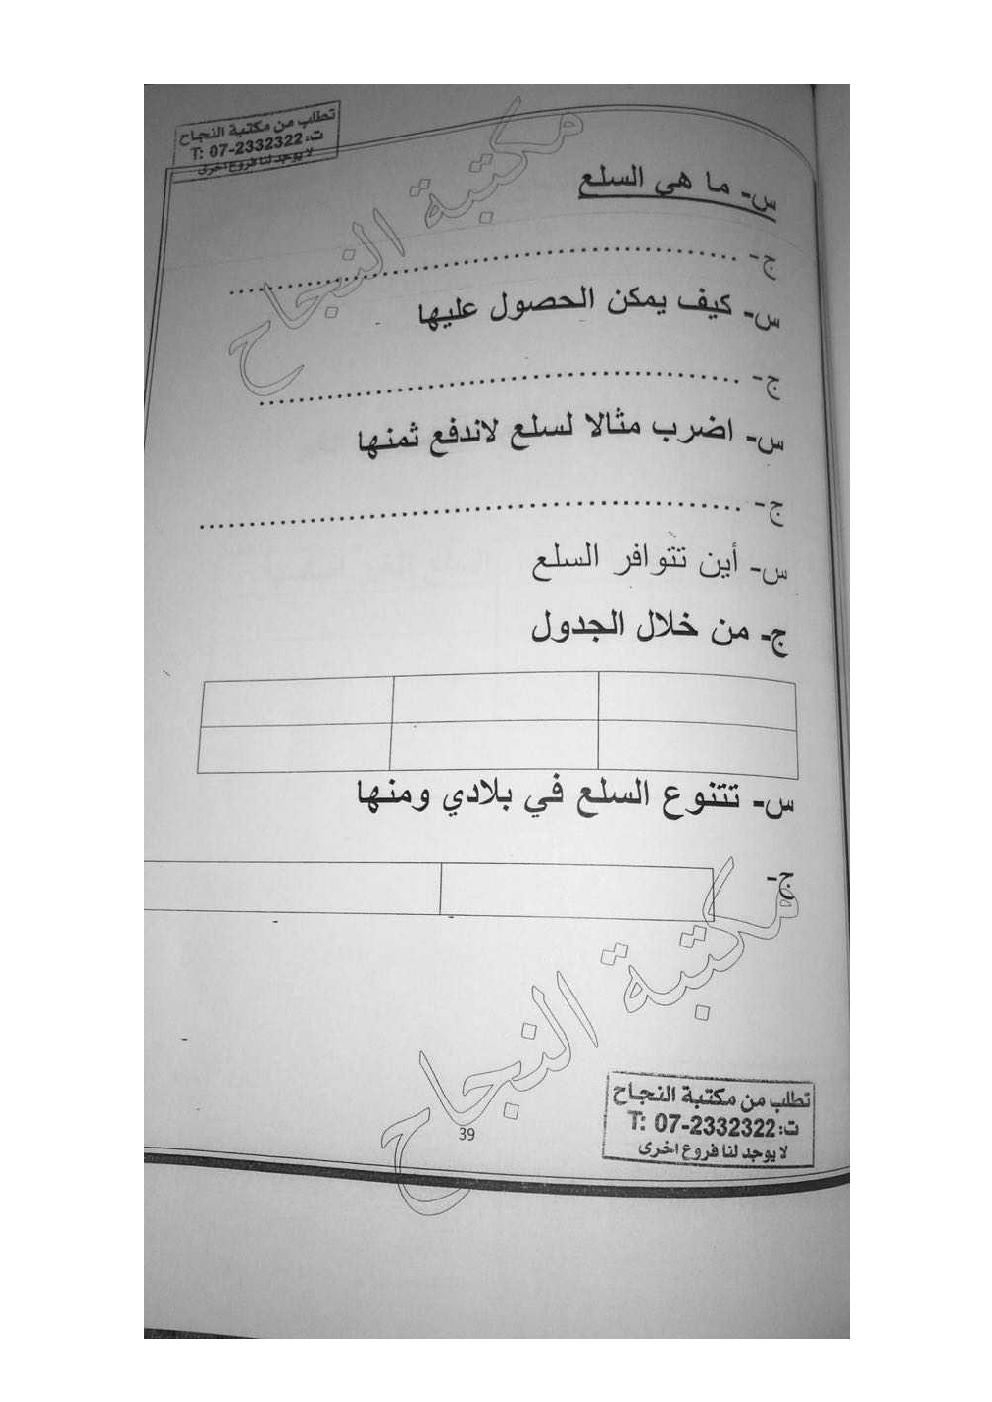 تطلب من مكتبة النجاح
ت: T: 07-2332322
لا يوجد لنا فروع اخرى
مكتبة النجاح
س- ما هي السلع
ج- ................................................
س- كيف يمكن الحصول عليها
ج- ................................................
س- اضرب مثالا لسلع لاندفع ثمنها
ج- ................................................
س- أين تتوافر السلع
ج- من خلال الجدول
س- تتنوع السلع في بلادي ومنها
ج-
مكتبة النجاح
تطلب من مكتبة النجاح
ت: T: 07-2332322
لا يوجد لنا فروع اخرى
39